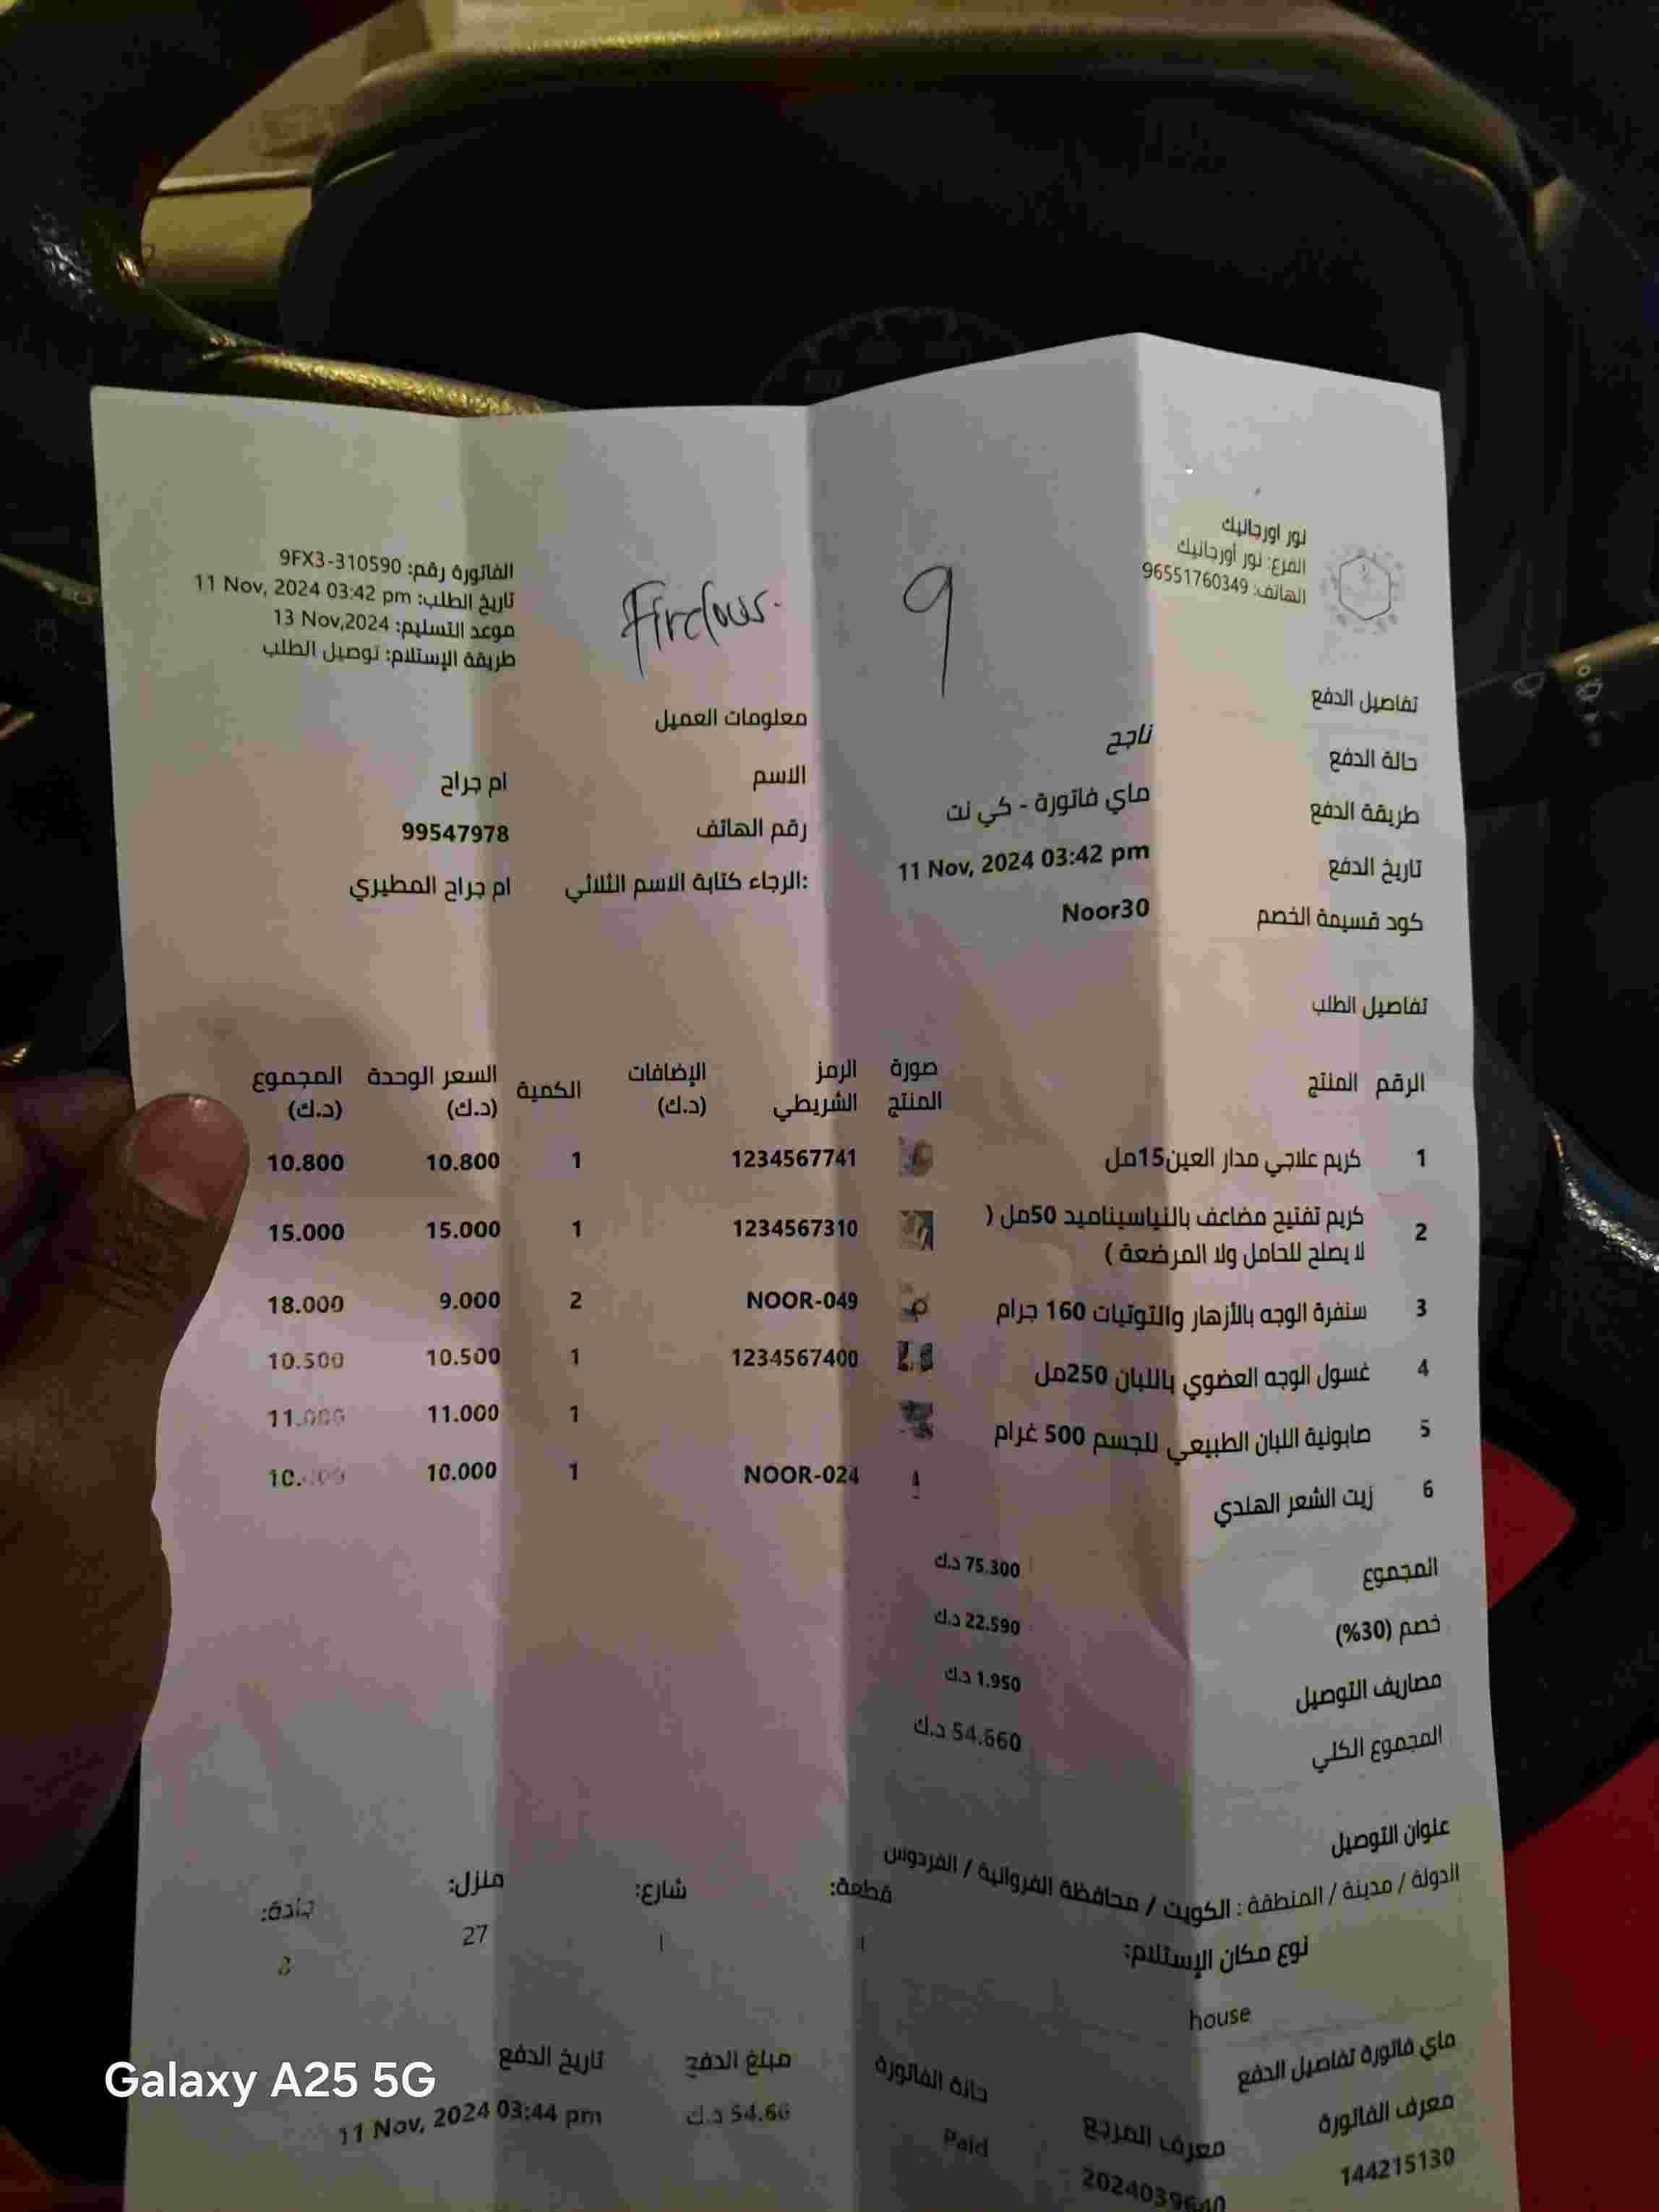 نور اورجانيك
الفرع: نور أورجانيك
الهاتف: 96551760349
9
Firdous.
الفاتورة رقم: 9FX3-310590
تاريخ الطلب: 11 Nov, 2024 03:42 pm
موعد التسليم: 13 Nov,2024
طريقة الإستلام: توصيل الطلب
تفاصيل الدفع
حالة الدفع ناجح
طريقة الدفع ماي فاتورة - كي نت
تاريخ الدفع 11 Nov, 2024 03:42 pm
كود قسيمة الخصم Noor30
معلومات العميل
الاسم ام جراح
رقم الهاتف 99547978
الرجاء كتابة الاسم الثلاثي: ام جراح المطيري
تفاصيل الطلب
الرقم المنتج صورة المنتج الرمز الشريطي الإضافات (د.ك) الكمية السعر الوحدة (د.ك) المجموع (د.ك)
1 كريم علاجي مدار العين15مل 1234567741 1 10.800 10.800
2 كريم تفتيح مضاعف بالنياسيناميد 50مل ( 1234567310 1 15.000 15.000
لا يصلح للحامل ولا المرضعة )
3 سنفرة الوجه بالأزهار والتوتيات 160 جرام NOOR-049 2 9.000 18.000
4 غسول الوجه العضوي باللبان 250مل 1234567400 1 10.500 10.500
5 صابونية اللبان الطبيعي للجسم 500 غرام 1 11.000 11.000
6 زيت الشعر الهندي NOOR-024 1 10.000
المجموع 75.300 د.ك
خصم (30%) 22.590 د.ك
مصاريف التوصيل 1.950 د.ك
المجموع الكلي 54.660 د.ك
عنوان التوصيل
الدولة / مدينة / المنطقة : الكويت / محافظة الفروانية / الفردوس
نوع مكان الإستلام: قطعة: شارع: منزل: جادة:
house 1 1 27
ماي فاتورة تفاصيل الدفع
معرف الفاتورة معرف المرجع حالة الفاتورة مبلغ الدفع تاريخ الدفع
144215130 2024039640 Paid 54.66 د.ك 11 Nov, 2024 03:44 pm
Galaxy A25 5G